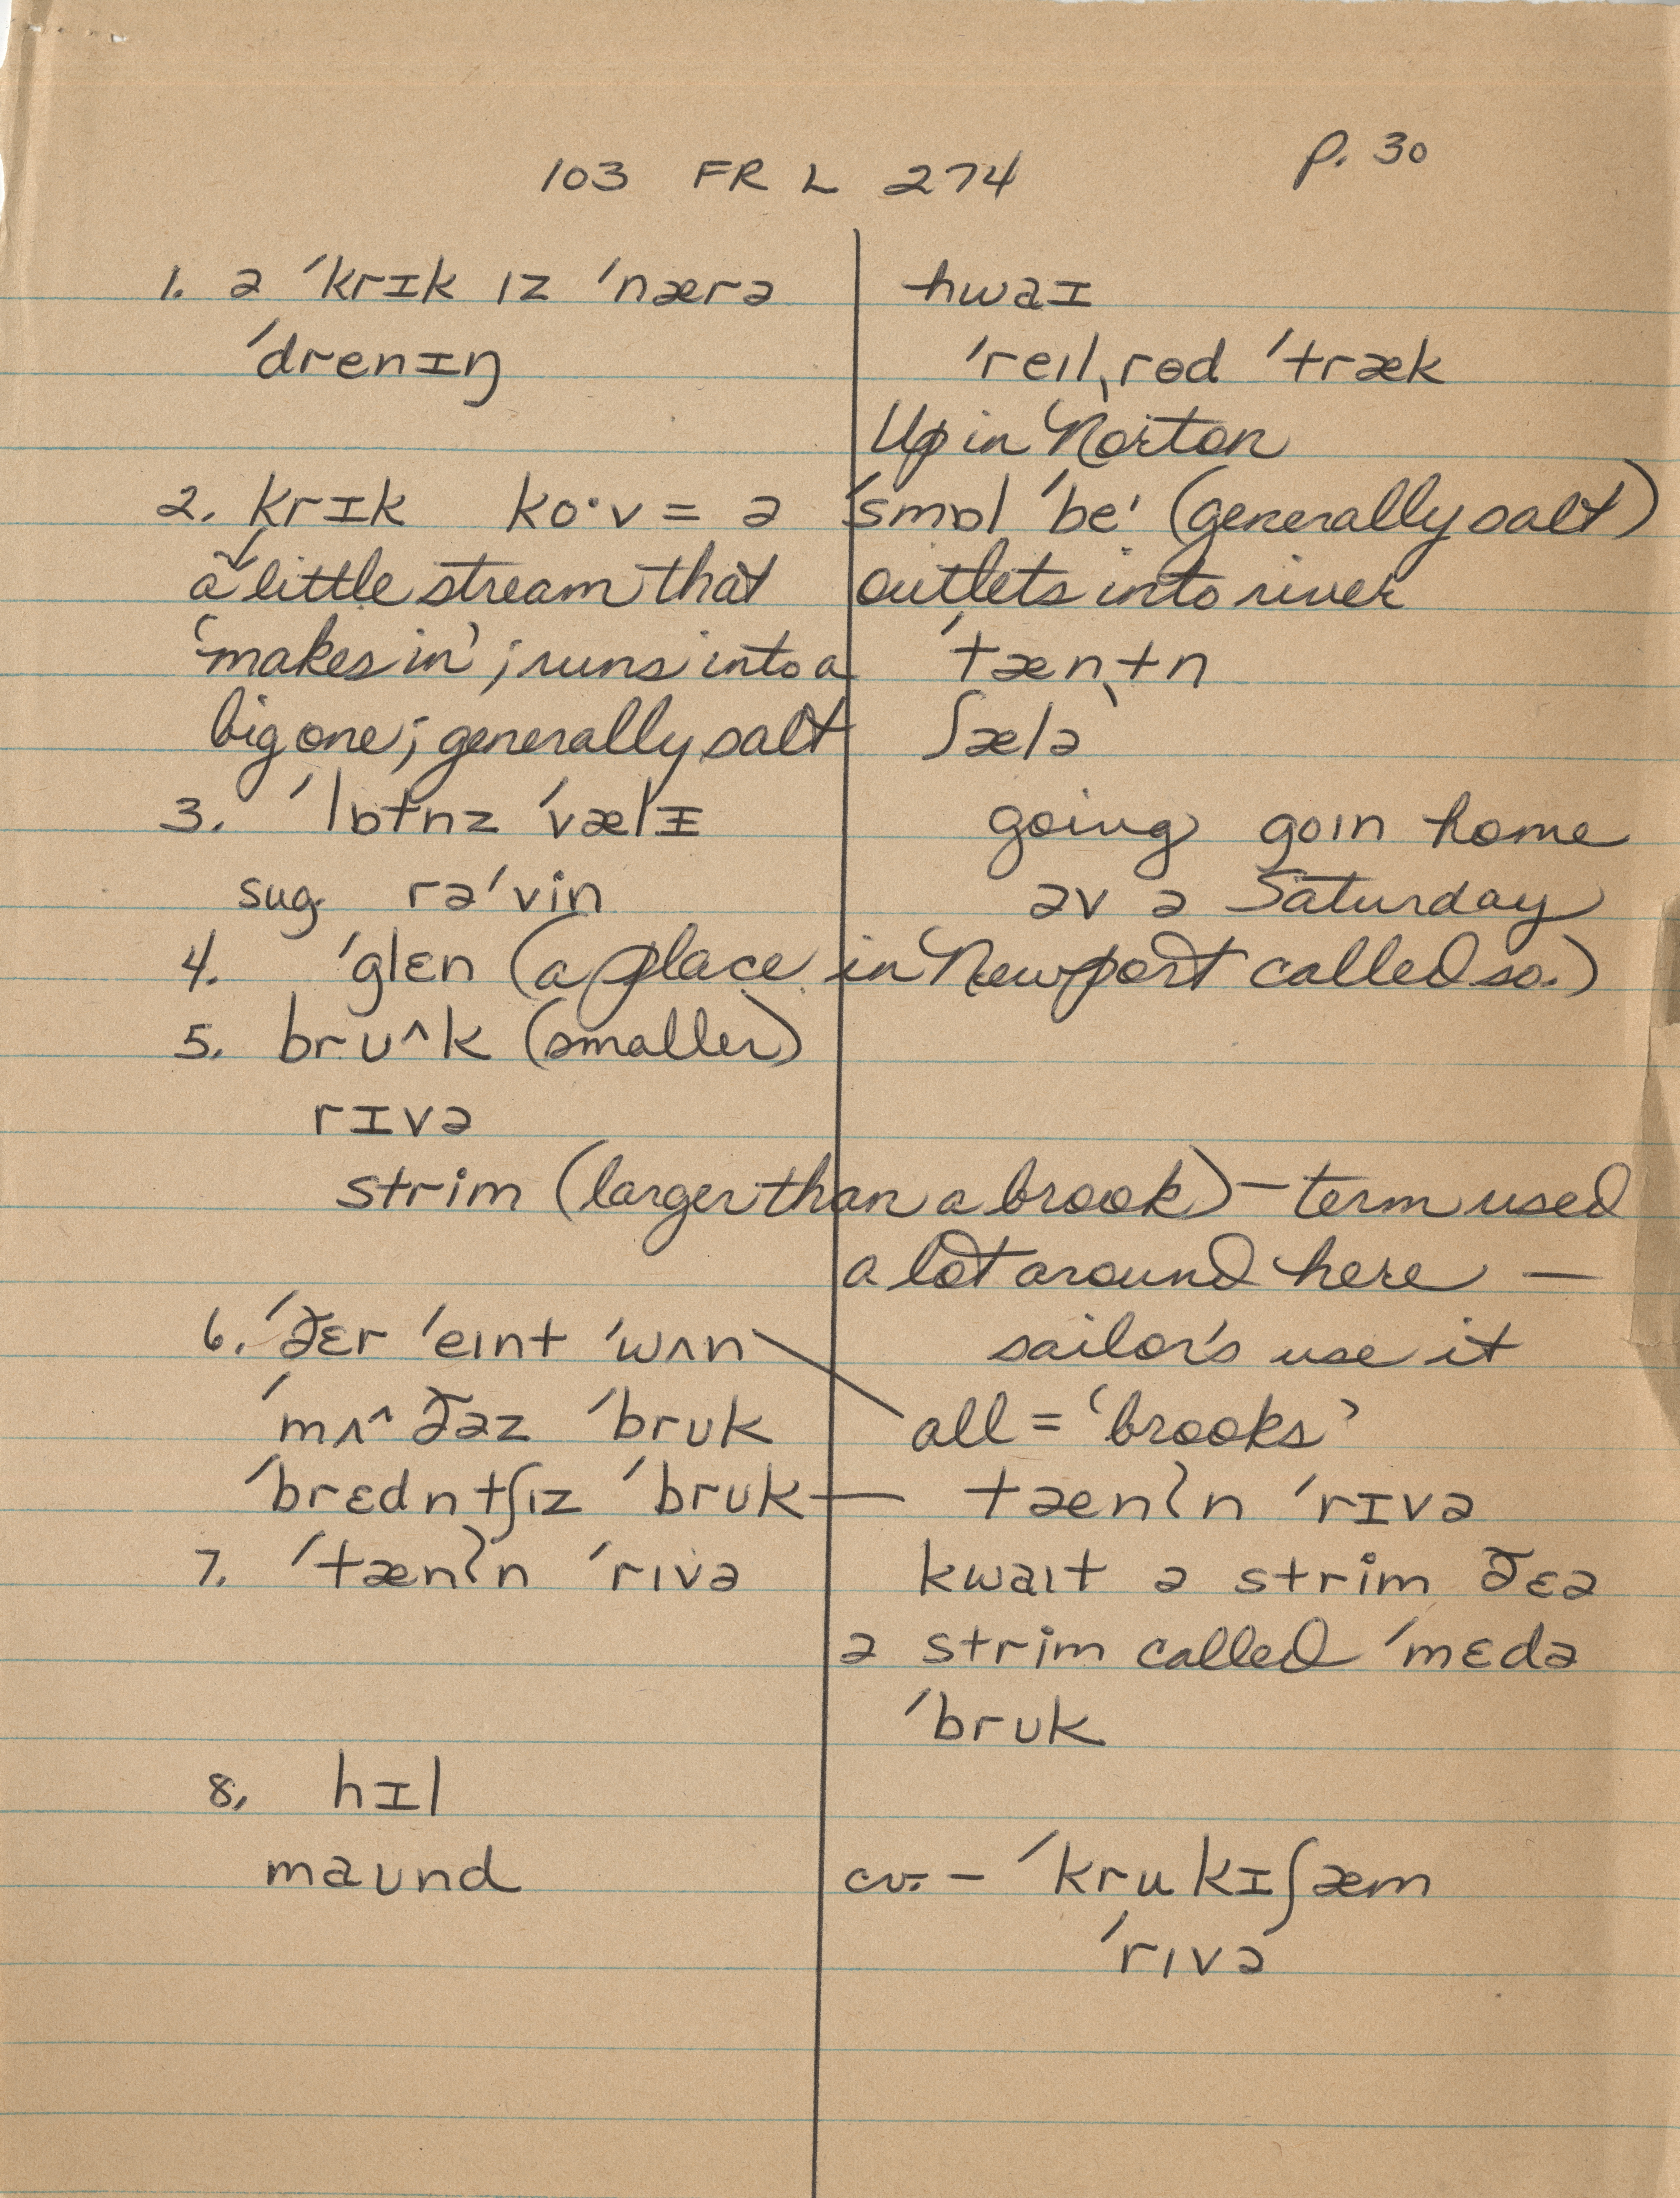 p. 30
103 FR L 274
1. ə ˈkrɪk ɪz ˈnærə
ˈdrenɪŋ
hwaɪ
ˈreɪlˌrɵd ˈtræk
Up in Norton
2. krɪk ko·v = ə ˈsmɒl ˈbeˈ (generally salt)
a little stream that outlets into river
'makes in'; runs into a ˈtænˌtn
big one; generally salt ʃælə
3. ˈlɒtnz ˈvælɪ
sug. rəˈvin
going goɪn home
əv ə Saturday
4. ˈglɛn (a place in Newport called so.)
5. brʊ^k (smaller)
rɪvə
strim (larger than a brook) – term used
a lot around here —
sailor's use it
6. ˈðɛr ˈeɪnt ˈwʌn
ˈmʌ^ðəz ˈbrʊk all = 'brooks'
ˈbrɛdntʃɪz ˈbrʊk — tænʔn ˈrɪvə
7. ˈtænʔn ˈrɪvə kwaɪt ə strim ðɛə
ə strim called ˈmɛdə
ˈbrʊk
8. hɪl
maʊnd cv. – ˈkrukɪʃæm
ˈrɪvə